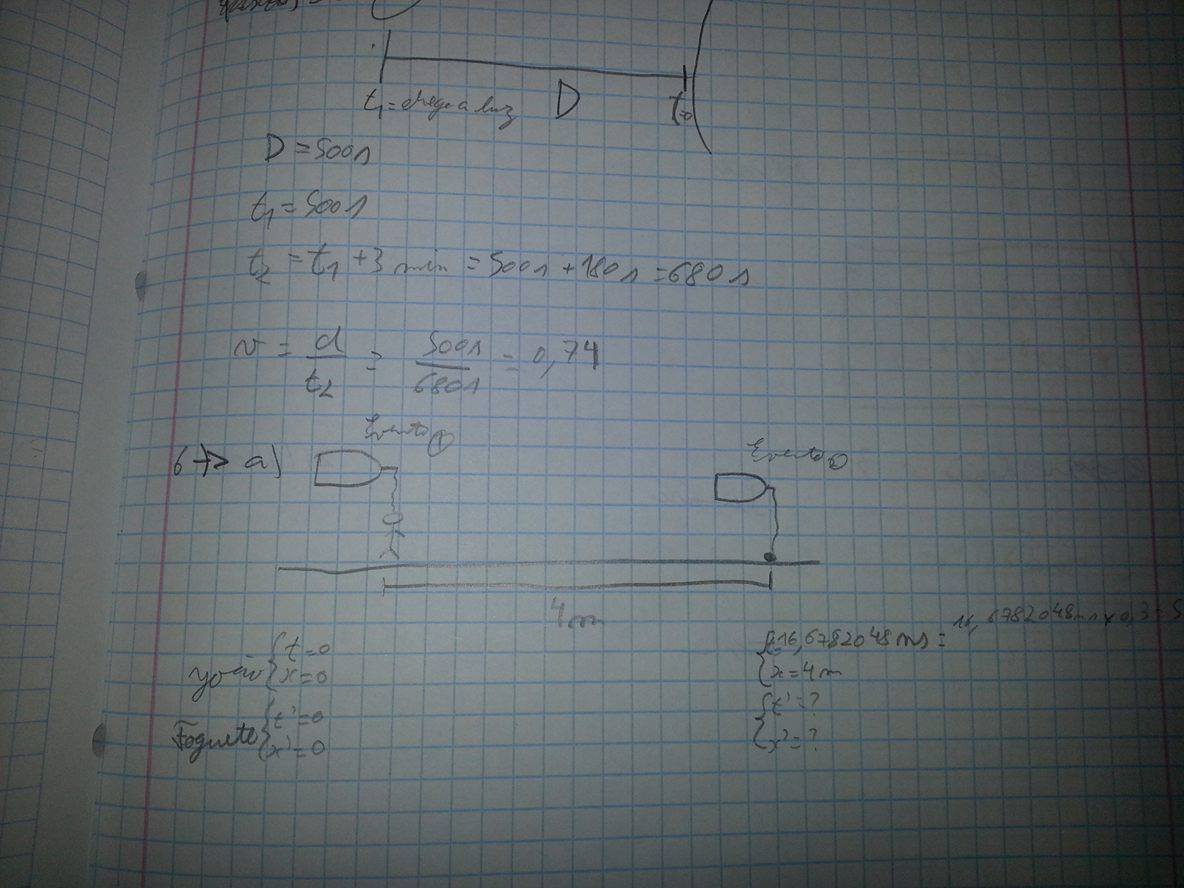 t₁=chega a luz D t₀
D = 500s
t₁ = 500s
t₂ = t₁ + 3 min = 500s + 180s = 680s
v = d/t₂ = 500s/680s = 0,74
6 → a) Evento ①
Evento
4m
{t=0
{x=0
Foguete {t'=0
{x'=0
16,6782048ns =
{x=4m
{t'=?
{x'=?